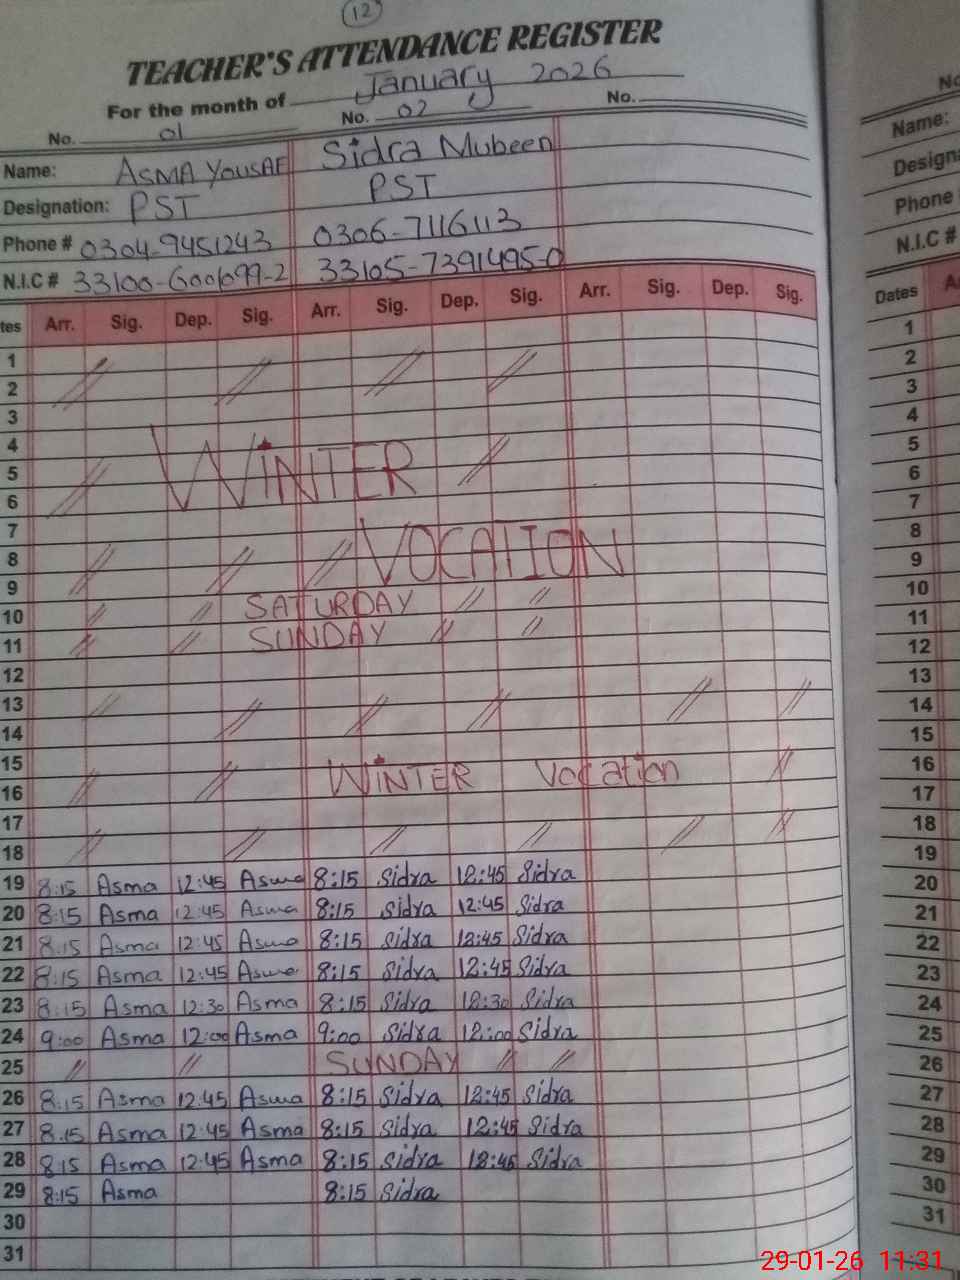 12
TEACHER'S ATTENDANCE REGISTER
For the month of January 2026
No. 01 No. 02 No.
Name: ASMA YOUSAF Sidra Mubeen
Designation: PST PST
Phone # 0304-9451243 0306-7116113
N.I.C # 33100-6001099-2 33105-7391495-0
tes Arr. Sig. Dep. Sig. Arr. Sig. Dep. Sig. Arr. Sig. Dep. Sig.
1
2
3
4
5 WINTER
6
7
8 VOCATION
9
10 SATURDAY
11 SUNDAY
12
13
14
15
16 WINTER Vocation
17
18
19 8:15 Asma 12:45 Asma 8:15 Sidra 12:45 Sidra
20 8:15 Asma 12:45 Asma 8:15 Sidra 12:45 Sidra
21 8:15 Asma 12:45 Asma 8:15 Sidra 12:45 Sidra
22 8:15 Asma 12:45 Asma 8:15 Sidra 12:45 Sidra
23 8:15 Asma 12:30 Asma 8:15 Sidra 12:30 Sidra
24 9:00 Asma 12:00 Asma 9:00 Sidra 12:00 Sidra
25 SUNDAY
26 8:15 Asma 12:45 Asma 8:15 Sidra 12:45 Sidra
27 8:15 Asma 12:45 Asma 8:15 Sidra 12:45 Sidra
28 8:15 Asma 12:45 Asma 8:15 Sidra 12:45 Sidra
29 8:15 Asma 8:15 Sidra
30
31
No
Name:
Design
Phone
N.I.C #
Dates
1
2
3
4
5
6
7
8
9
10
11
12
13
14
15
16
17
18
19
20
21
22
23
24
25
26
27
28
29
30
31
29-01-26 11:31